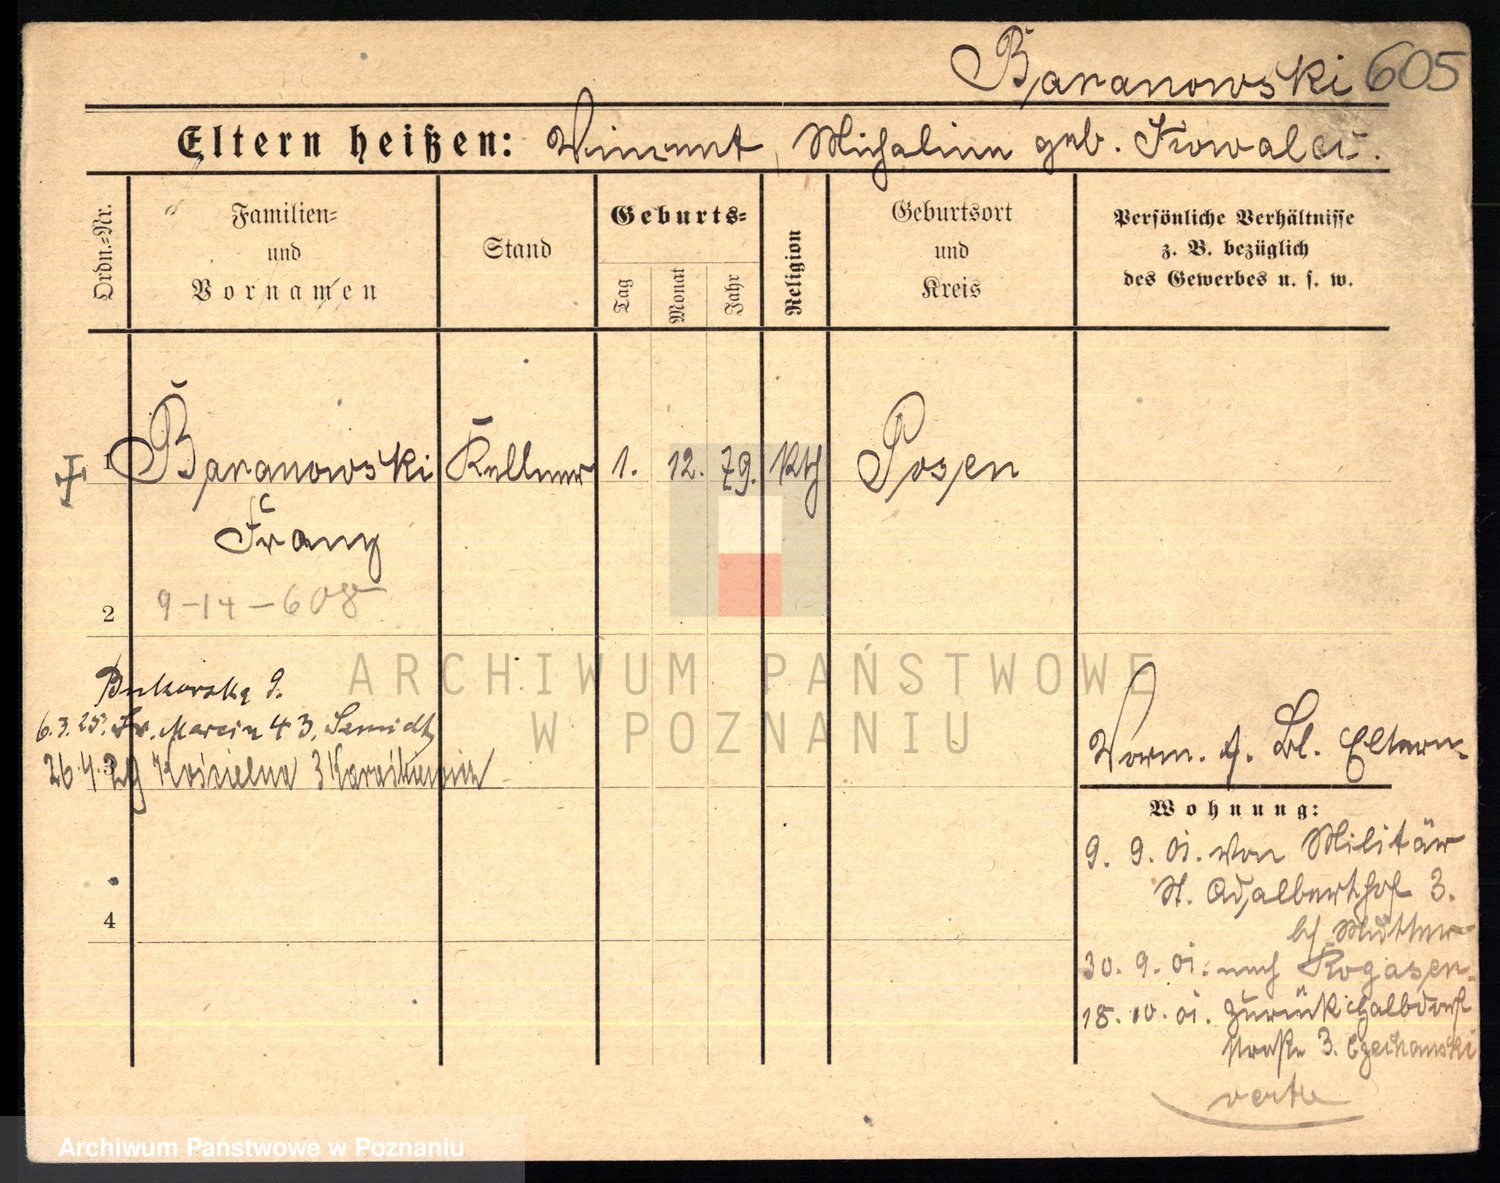 Baranowski 605
Eltern heißen: Vincent, Michalina geb. Kowalei.
Ordn.-Nr.
Familien-
und
Vornamen
Stand
Geburts-
Tag
Monat
Jahr
Religion
Geburtsort
und
Kreis
Persönliche Verhältnisse
z. B. bezüglich
des Gewerbes u. s. w.
1 Baranowski Kellner 1. 12. 79. kth Posen
Franz
2
9-14-608
Bukowska 9.
6.3.25. Św. Marcin 43, Szmidt
26.4.29 Kościelna 3
3
4
Vorm. s. Bl. Eltern.
Wohnung:
9. 9. 01. von Militär
St. Adalberthof 3.
bei Mutter
30. 9. 01. nach Rogasen.
18. 10. 01. zurück Halbdorf
straße 3.
verte
ARCHIWUM PAŃSTWOWE
W POZNANIU
Archiwum Państwowe w Poznaniu